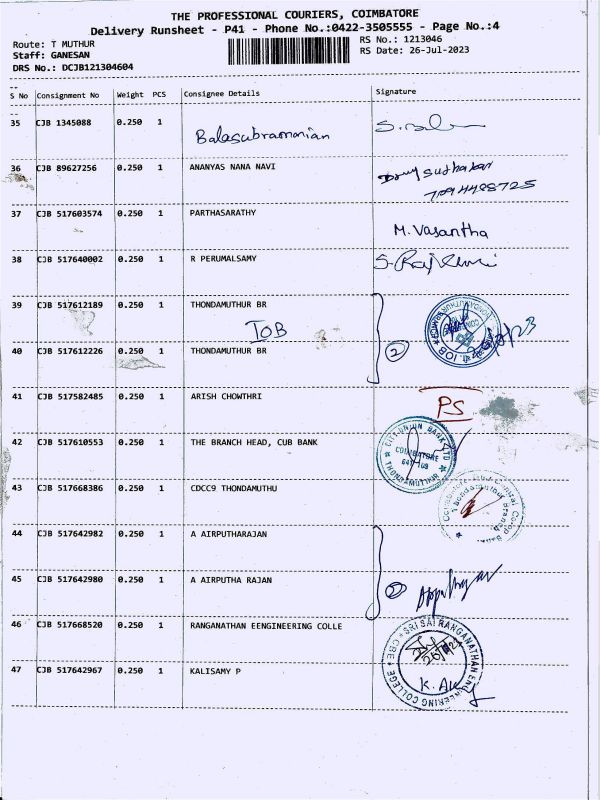 THE PROFESSIONAL COURIERS, COIMBATORE
Delivery Runsheet - P41 - Phone No.:0422-3505555 - Page No.:4
Route: T MUTHUR RS No.: 1213046
Staff: GANESAN RS Date: 26-Jul-2023
DRS No.: DCJB121304604
S No Consignment No Weight PCS Consignee Details Signature
35 CJB 1345088 0.250 1
Balasubramanian
36 CJB 89627256 0.250 1 ANANYAS NANA NAVI
Sudhakar
37 CJB 517603574 0.250 1 PARTHASARATHY
M. Vasantha
38 CJB 517640002 0.250 1 R PERUMALSAMY
39 CJB 517612189 0.250 1 THONDAMUTHUR BR
IOB
40 CJB 517612226 0.250 1 THONDAMUTHUR BR
2
41 CJB 517582485 0.250 1 ARISH CHOWTHRI
PS
42 CJB 517610553 0.250 1 THE BRANCH HEAD, CUB BANK
CITY UNION BANK LTD
COIMBATORE
THONDAMUTHUR
43 CJB 517668386 0.250 1 CDCC9 THONDAMUTHU
44 CJB 517642982 0.250 1 A AIRPUTHARAJAN
45 CJB 517642980 0.250 1 A AIRPUTHA RAJAN
2
46 CJB 517668520 0.250 1 RANGANATHAN EENGINEERING COLLE
SRI SAI RANGANATHAN ENGINEERING COLLEGE CBE
47 CJB 517642967 0.250 1 KALISAMY P